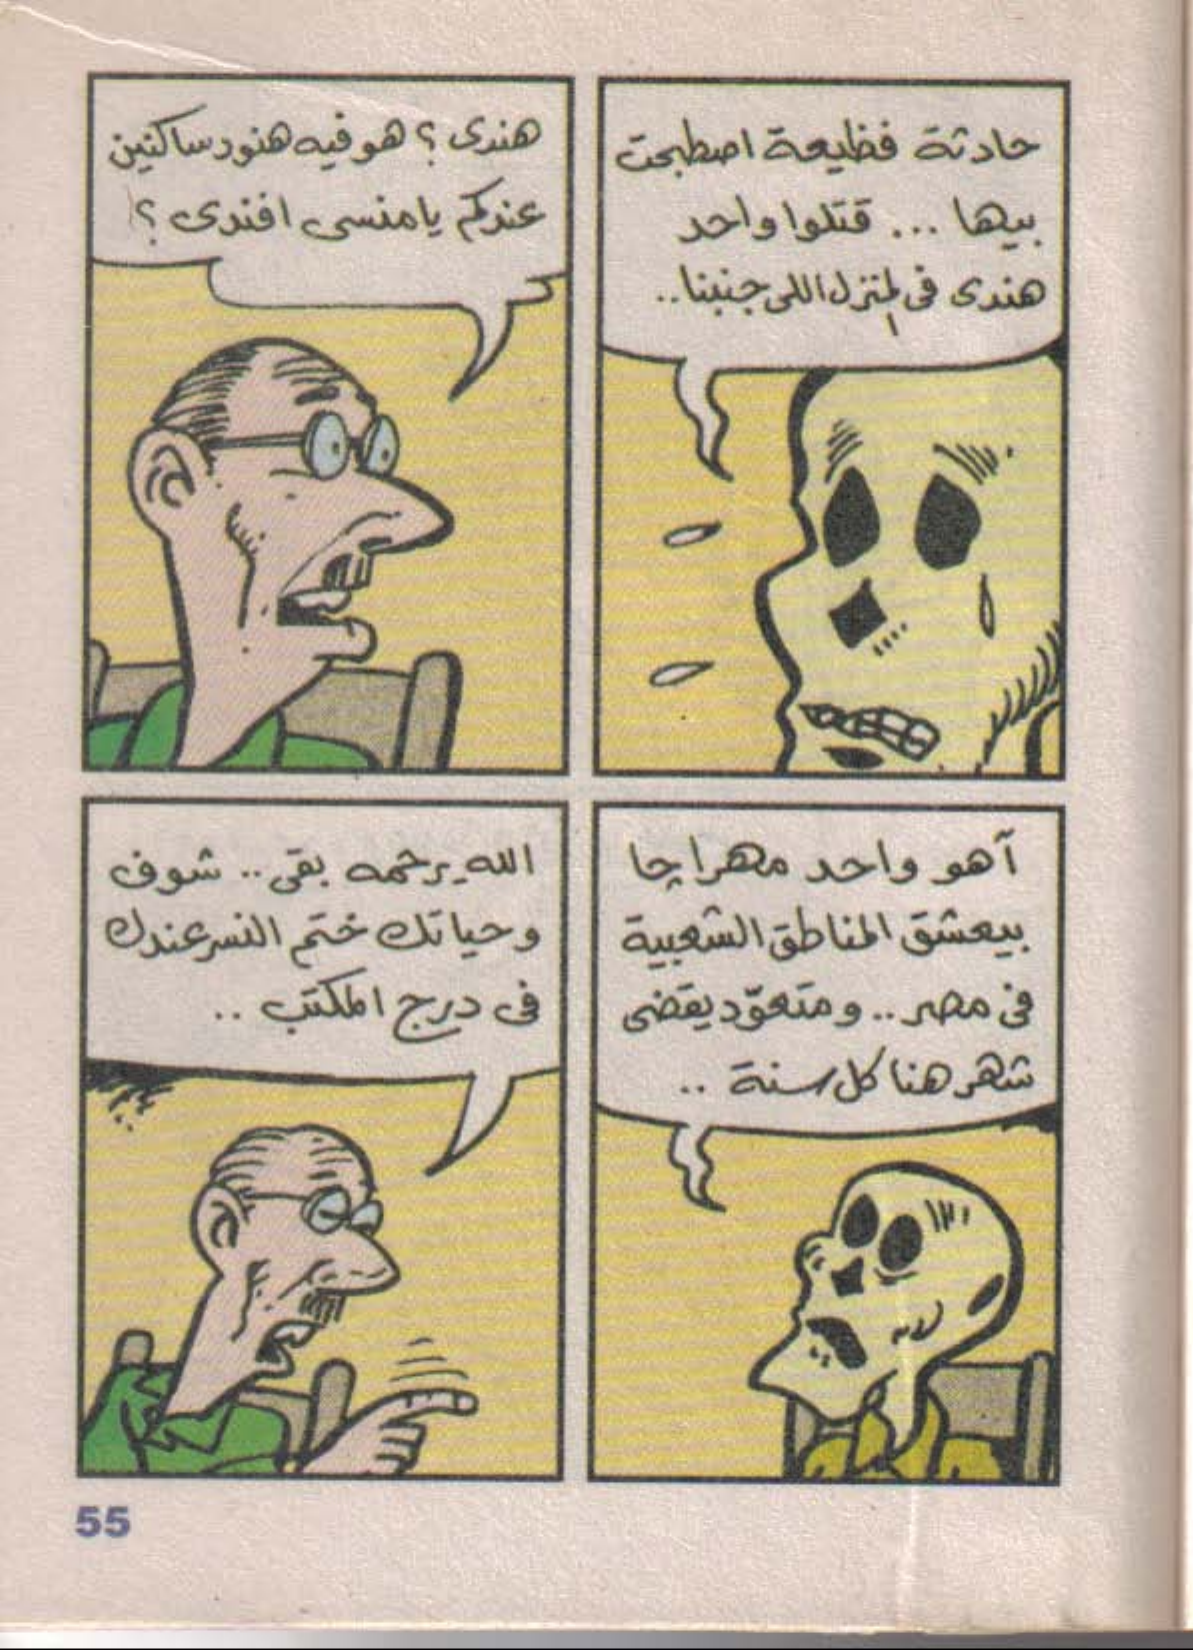 حادثة فظيعة اصطبحت
بيها ... قتلوا واحد
هندى فى المنزل اللى جنبنا..
هندى ؟ هو فيه هنود ساكنين
عندكم يا منسى افندى ؟
آهو واحد مهراچا
بيعشق المناطق الشعبية
فى مصر .. ومتعوّد يقضى
شهر هنا كل سنة ..
الله يرحمه بقى .. شوف
وحياتك ختم النسر عندك
فى درج المكتب ..
55